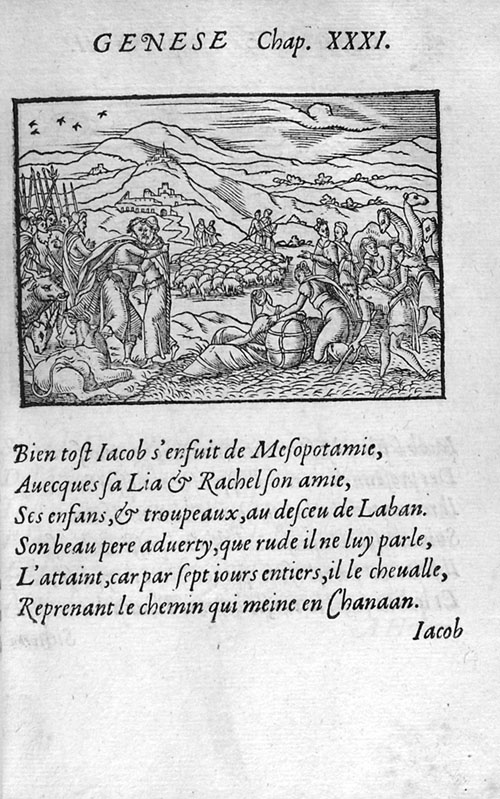 GENESE Chap. XXXI.
Bien toſt Iacob s'enfuit de Meſopotamie,
Auecques ſa Lia & Rachel ſon amie,
Ses enfans, & troupeaux, au deſceu de Laban.
Son beau pere aduerty, que rude il ne luy parle,
L'attaint, car par ſept iours entiers, il le cheualle,
Reprenant le chemin qui meine en Chanaan.
Iacob